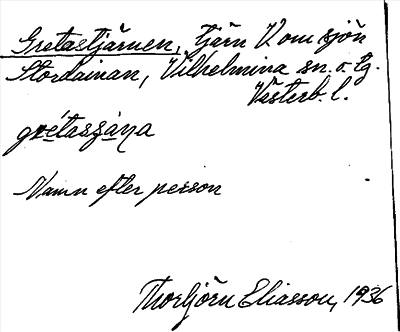 Gretastjärnen, tjärn V om sjön
Stordainan, Vilhelmina sn. o. tg.
Västerb. l.
grétasjäṇa
Namn efter person
Thorbjörn Eliasson, 1936